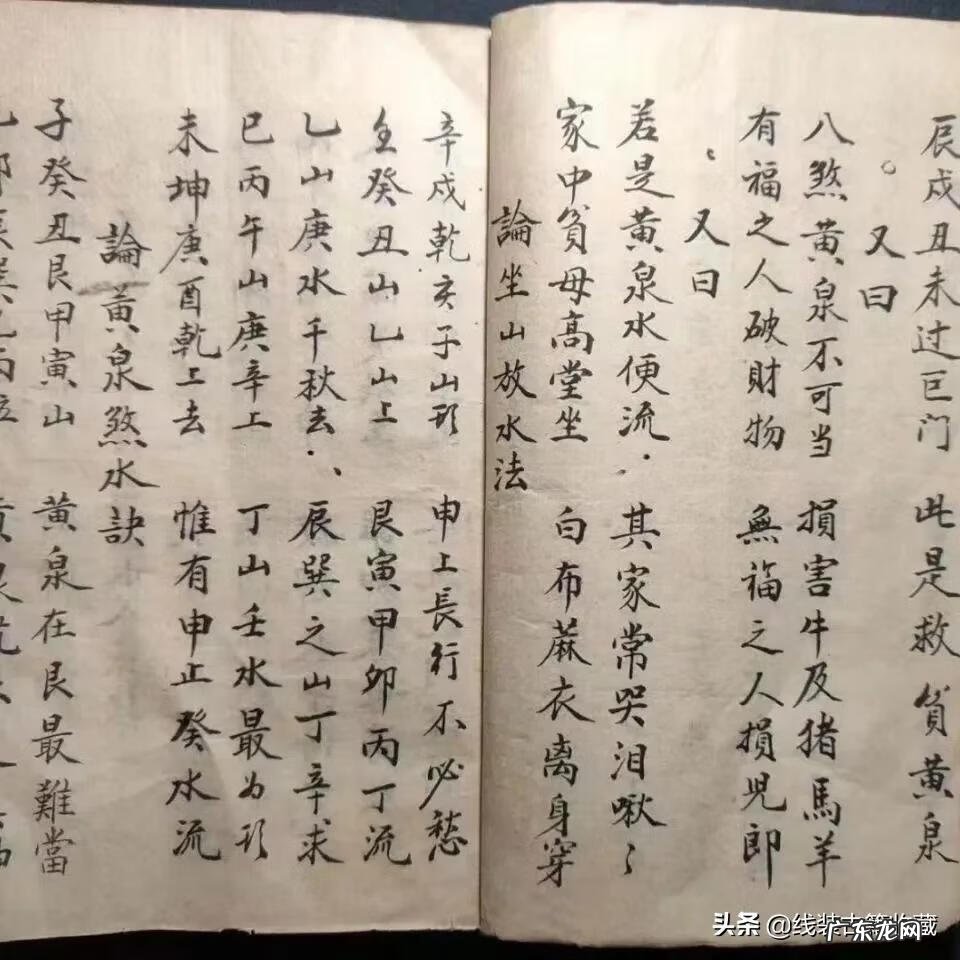 辰戌丑未过巨门 此是救貧黃泉
又曰
八煞黃泉不可当 損害牛及猪馬羊
有福之人破財物 無福之人損児郎
又曰
若是黃泉水便流 其家常哭泪啾〻
家中貧母高堂坐 白布蔴衣离身穿
論坐山放水法
辛戌乾亥子山形 申上長行不必愁
壬癸丑山乚山上 艮寅甲卯丙丁流
乚山庚水千秋去 辰巽之山丁辛求
巳丙午山庚辛上 丁山壬水最为形
未坤庚酉乾上去 惟有申正癸水流
論黃泉煞水訣
子癸丑艮甲寅山 黃泉在艮最難當
头条 @线装古籍收藏
广东龙网